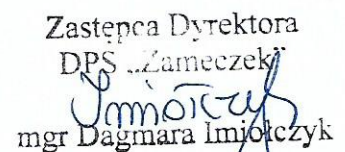 Zastępca Dyrektora
DPS „Zameczek”
mgr Dagmara Imiołczyk